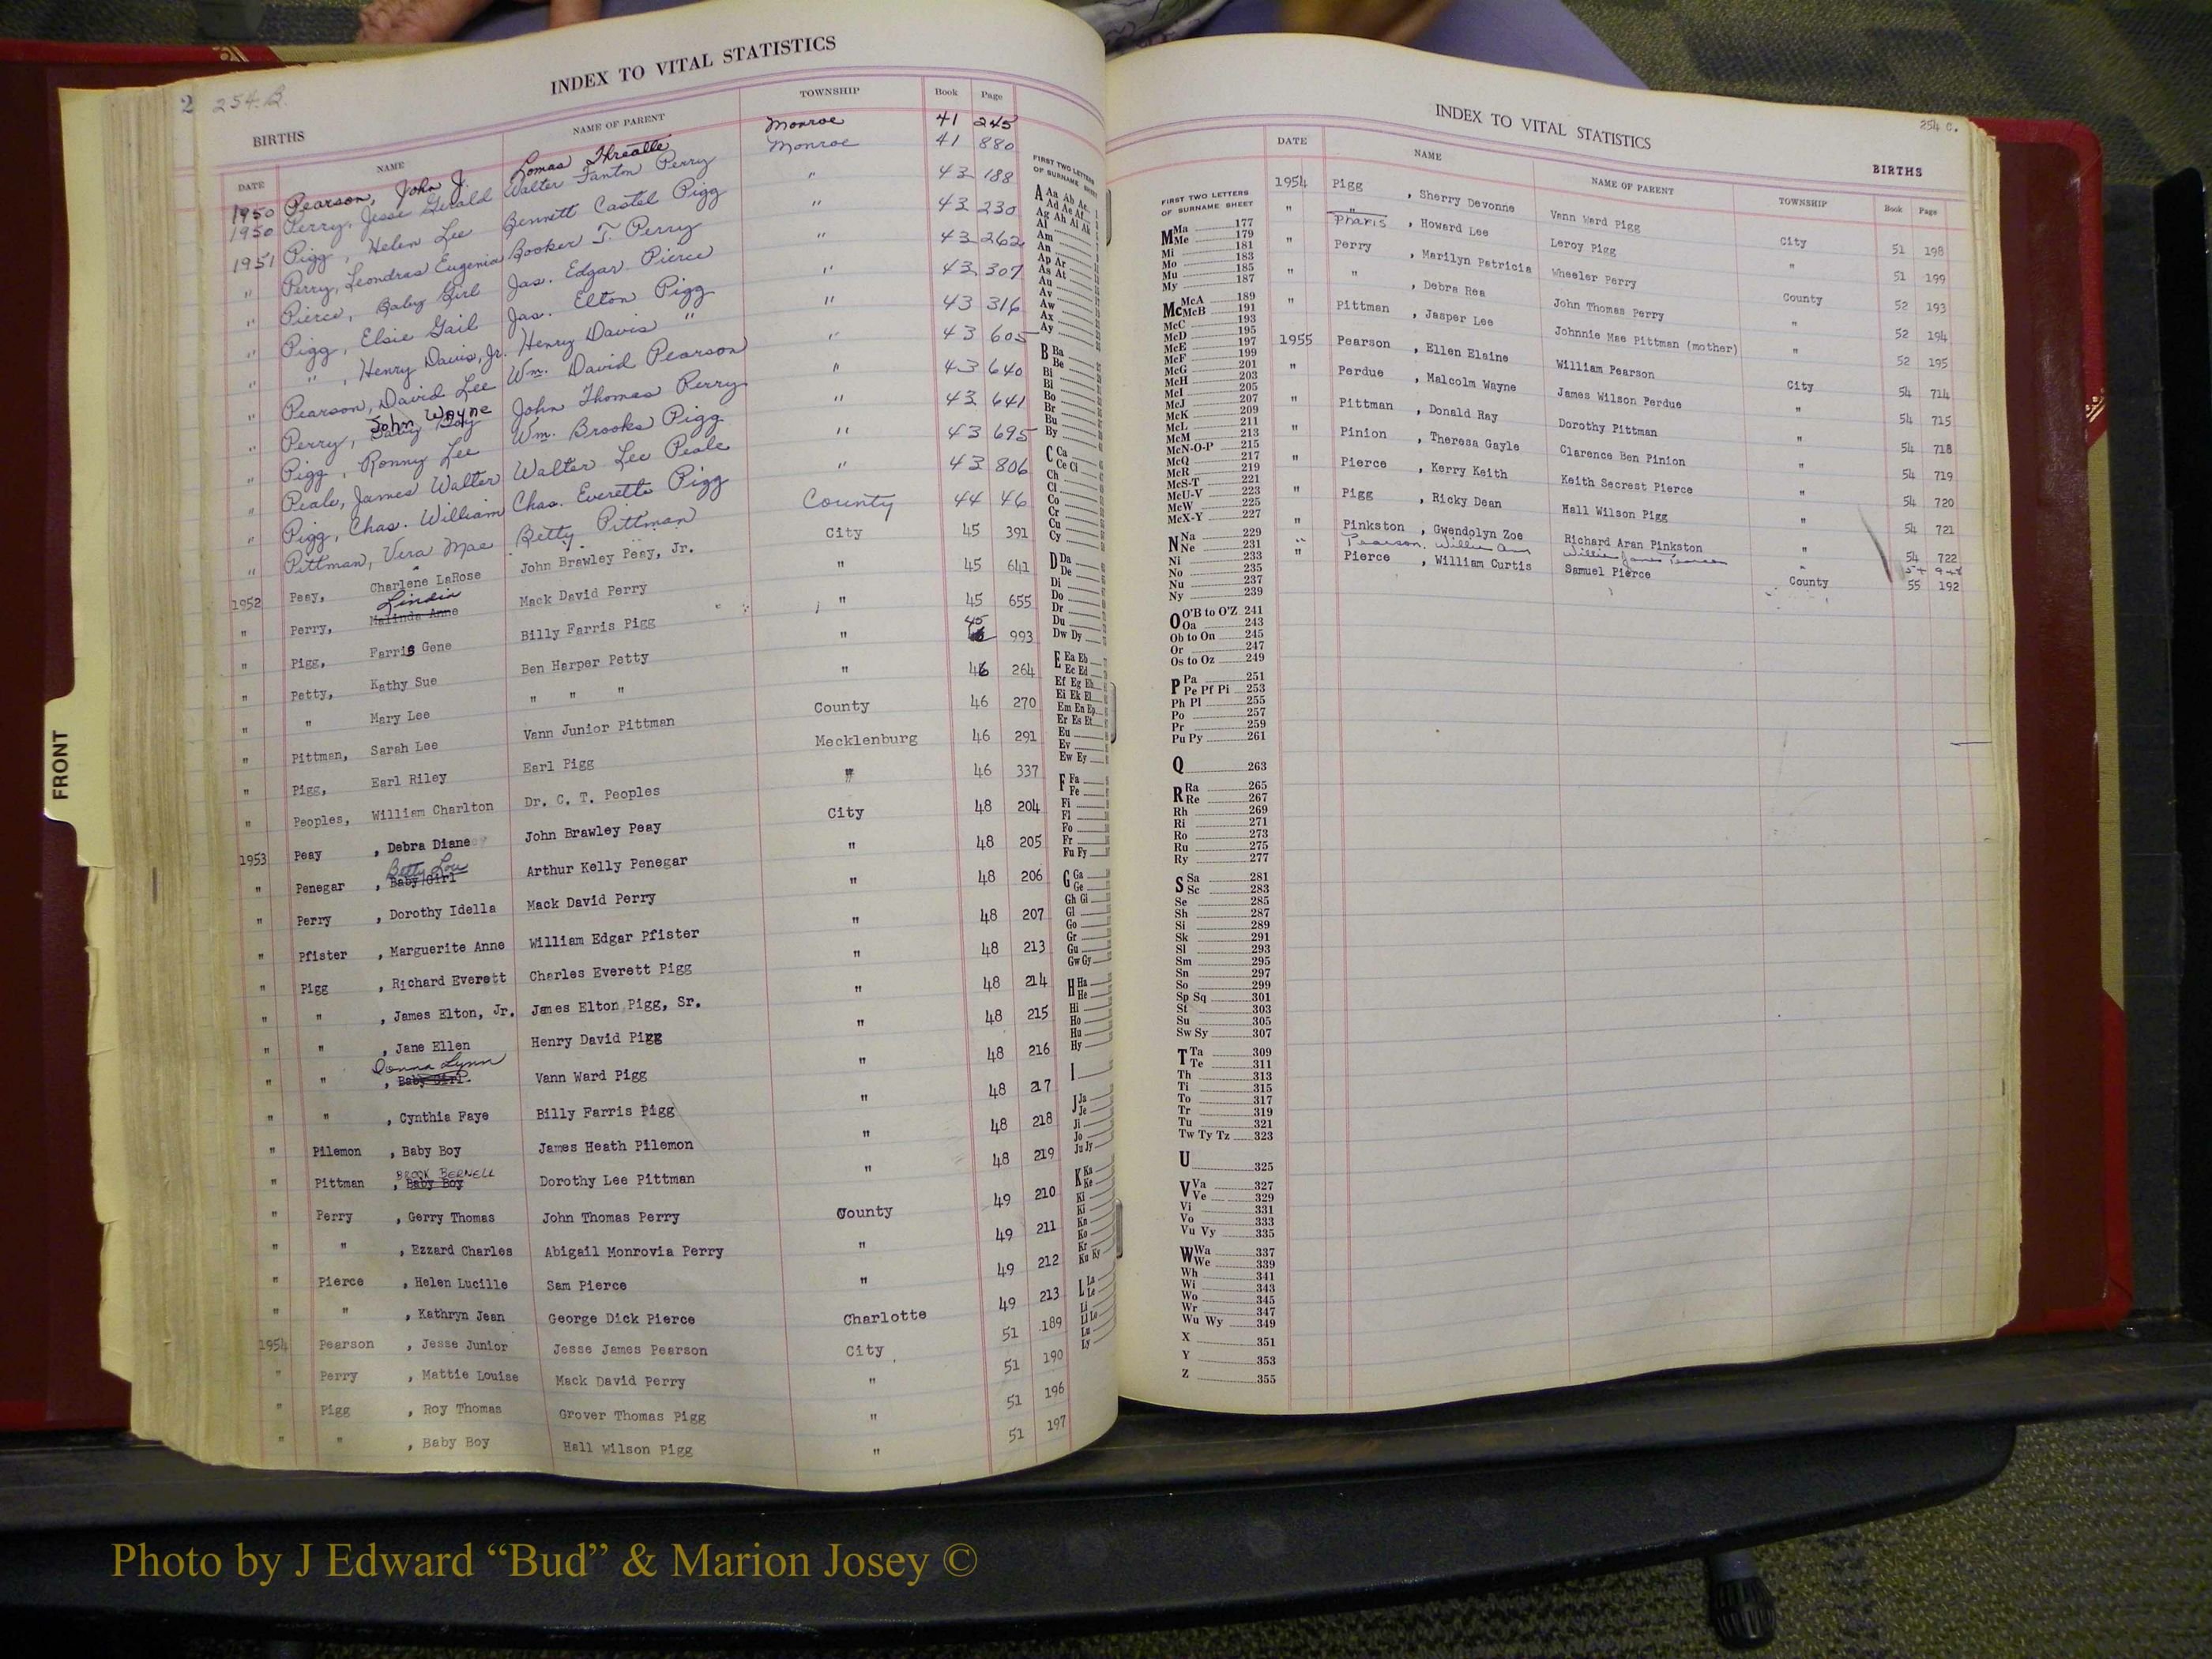 INDEX TO VITAL STATISTICS
2 254.B.
BIRTHS
DATE NAME NAME OF PARENT TOWNSHIP Book Page
1950 Pearson, John J. Lomas Threatte Monroe 41 245
1950 Perry, Jesse Gerald Walter Fanton Perry Monroe 41 880
1951 Pigg, Helen Lee Bennett Castel Pigg " 43 188
" Perry, Leondras Eugenia Booker T. Perry " 43 230
" Pierce, Baby Girl Jas. Edgar Pierce " 43 262
" Pigg, Elsie Gail Jas. Elton Pigg " 43 307
" " , Henry Davis, Jr. Henry Davis " " 43 316
" Pearson, David Lee Wm. David Pearson " 43 605
" Perry, John Wayne John Thomas Perry " 43 640
" Pigg, Ronny Lee Wm. Brooks Pigg " 43 641
" Peale, James Walter Walter Lee Peale " 43 695
" Pigg, Chas. William Chas. Everette Pigg " 43 806
" Pittman, Vera Mae Betty Pittman County 44 46
1952 Peay, Charlene LaRose John Brawley Peay, Jr. City 45 391
Linda
" Perry, Malinda Anne Mack David Perry " 45 641
" Pigg, Farris Gene Billy Farris Pigg " 45 655
" Petty, Kathy Sue Ben Harper Petty " 45 993
" " Mary Lee " " " " 46 264
" Pittman, Sarah Lee Vann Junior Pittman County 46 270
" Pigg, Earl Riley Earl Pigg Mecklenburg 46 291
" Peoples, William Charlton Dr. C. T. Peoples " 46 337
1953 Peay , Debra Diane John Brawley Peay City 48 204
Betty Lou
" Penegar , Baby Girl Arthur Kelly Penegar " 48 205
" Perry , Dorothy Idella Mack David Perry " 48 206
" Pfister , Marguerite Anne William Edgar Pfister " 48 207
" Pigg , Richard Everett Charles Everett Pigg " 48 213
" " , James Elton, Jr. James Elton Pigg, Sr. " 48 214
" " , Jane Ellen Henry David Pigg " 48 215
Donna Lynn
" " , Baby Girl Vann Ward Pigg " 48 216
" " , Cynthia Faye Billy Farris Pigg " 48 217
" Pilemon , Baby Boy James Heath Pilemon " 48 218
BROOK BERNELL
" Pittman , Baby Boy Dorothy Lee Pittman " 48 219
" Perry , Gerry Thomas John Thomas Perry County 49 210
" " , Ezzard Charles Abigail Monrovia Perry " 49 211
" Pierce , Helen Lucille Sam Pierce " 49 212
" " , Kathryn Jean George Dick Pierce Charlotte 49 213
1954 Pearson , Jesse Junior Jesse James Pearson City 51 189
" Perry , Mattie Louise Mack David Perry " 51 190
" Pigg , Roy Thomas Grover Thomas Pigg " 51 196
" " , Baby Boy Hall Wilson Pigg " 51 197
FRONT
FIRST TWO LETTERS
OF SURNAME SHEET
A Aa Ab Ac
Ad Ae Af
Ag Ah Ai Ak
Al
Am
An
Ap Ar
As At
Au
Av
Aw
Ax
Ay
B Ba
Be
Bi
Bl
Bo
Br
Bu
By
C Ca
Ce Ci
Ch
Cl
Co
Cr
Cu
Cy
D Da
De
Di
Do
Dr
Du
Dw Dy
E Ea Eb
Ec Ed
Ef Eg Eh
Ei Ek El
Em En Ep
Er Es Et
Eu
Ev
Ew Ey
F Fa
Fe
Fi
Fl
Fo
Fr
Fu Fy
G Ga
Ge
Gh Gi
Gl
Go
Gr
Gu
Gw Gy
H Ha
He
Hi
Ho
Hu
Hy
I
J Ja
Je
Ji
Jo
Ju Jy
K Ka
Ke
Ki
Kn
Ko
Kr
Ku Ky
L La
Le
Li
Lu
Ly
INDEX TO VITAL STATISTICS
254 C.
BIRTHS
DATE NAME NAME OF PARENT TOWNSHIP Book Page
1954 Pigg , Sherry Devonne Vann Ward Pigg City 51 198
" " , Howard Lee Leroy Pigg " 51 199
Pharis
" Perry , Marilyn Patricia Wheeler Perry County 52 193
" " , Debra Rea John Thomas Perry " 52 194
" Pittman , Jasper Lee Johnnie Mae Pittman (mother) " 52 195
1955 Pearson , Ellen Elaine William Pearson City 54 714
" Perdue , Malcolm Wayne James Wilson Perdue " 54 715
" Pittman , Donald Ray Dorothy Pittman " 54 718
" Pinion , Theresa Gayle Clarence Ben Pinion " 54 719
" Pierce , Kerry Keith Keith Secrest Pierce " 54 720
" Pigg , Ricky Dean Hall Wilson Pigg " 54 721
" Pinkston , Gwendolyn Zoe Richard Aran Pinkston " 54 722
" Pearson, Willie Ann Willie James Pearson " 54
" Pierce , William Curtis Samuel Pierce County 55 192
FIRST TWO LETTERS
OF SURNAME SHEET
M Ma 177
Me 179
Mi 181
Mo 183
Mu 185
My 187
Mc McA 189
McB 191
McC 193
McD 195
McE 197
McF 199
McG 201
McH 203
McI 205
McJ 207
McK 209
McL 211
McM 213
McN-O-P 215
McQ 217
McR 219
McS-T 221
McU-V 223
McW 225
McX-Y 227
N Na 229
Ne 231
Ni 233
No 235
Nu 237
Ny 239
O O'B to O'Z 241
Oa 243
Ob to On 245
Or 247
Os to Oz 249
P Pa 251
Pe Pf Pi 253
Ph Pl 255
Po 257
Pr 259
Pu Py 261
Q 263
R Ra 265
Re 267
Rh 269
Ri 271
Ro 273
Ru 275
Ry 277
S Sa 281
Sc 283
Se 285
Sh 287
Si 289
Sk 291
Sl 293
Sm 295
Sn 297
So 299
Sp Sq 301
St 303
Su 305
Sw Sy 307
T Ta 309
Te 311
Th 313
Ti 315
To 317
Tr 319
Tu 321
Tw Ty Tz 323
U 325
V Va 327
Ve 329
Vi 331
Vo 333
Vu Vy 335
W Wa 337
We 339
Wh 341
Wi 343
Wo 345
Wr 347
Wu Wy 349
X 351
Y 353
Z 355
Photo by J Edward “Bud” & Marion Josey ©